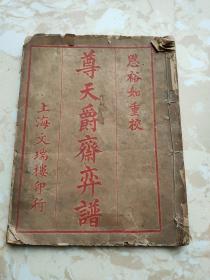 恩裕如重校
尊天爵齋弈譜
上海文瑞樓印行